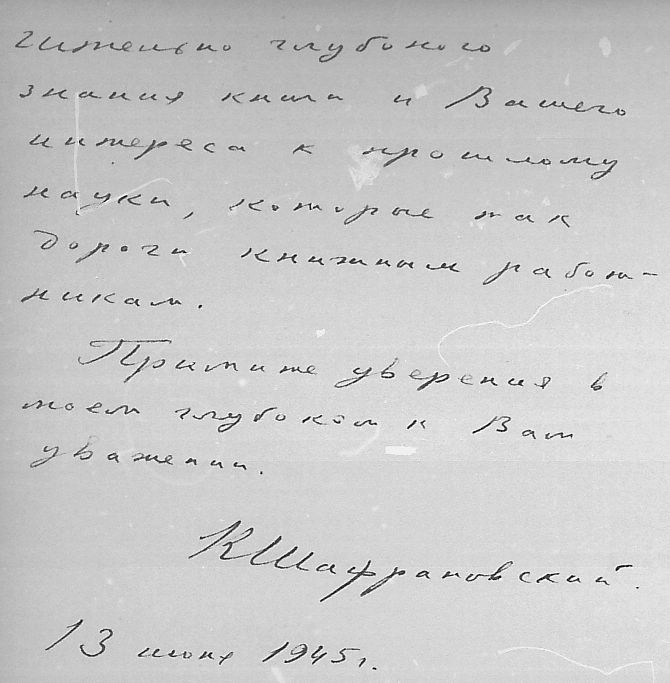 чительно глубокого
знания книги и Вашего
интереса к прошлому
науки, которые так
дороги книжным работ-
никам.
Примите уверения в
моем глубоком к Вам
уважении.
КШафрановский.
13 июня 1945 г.